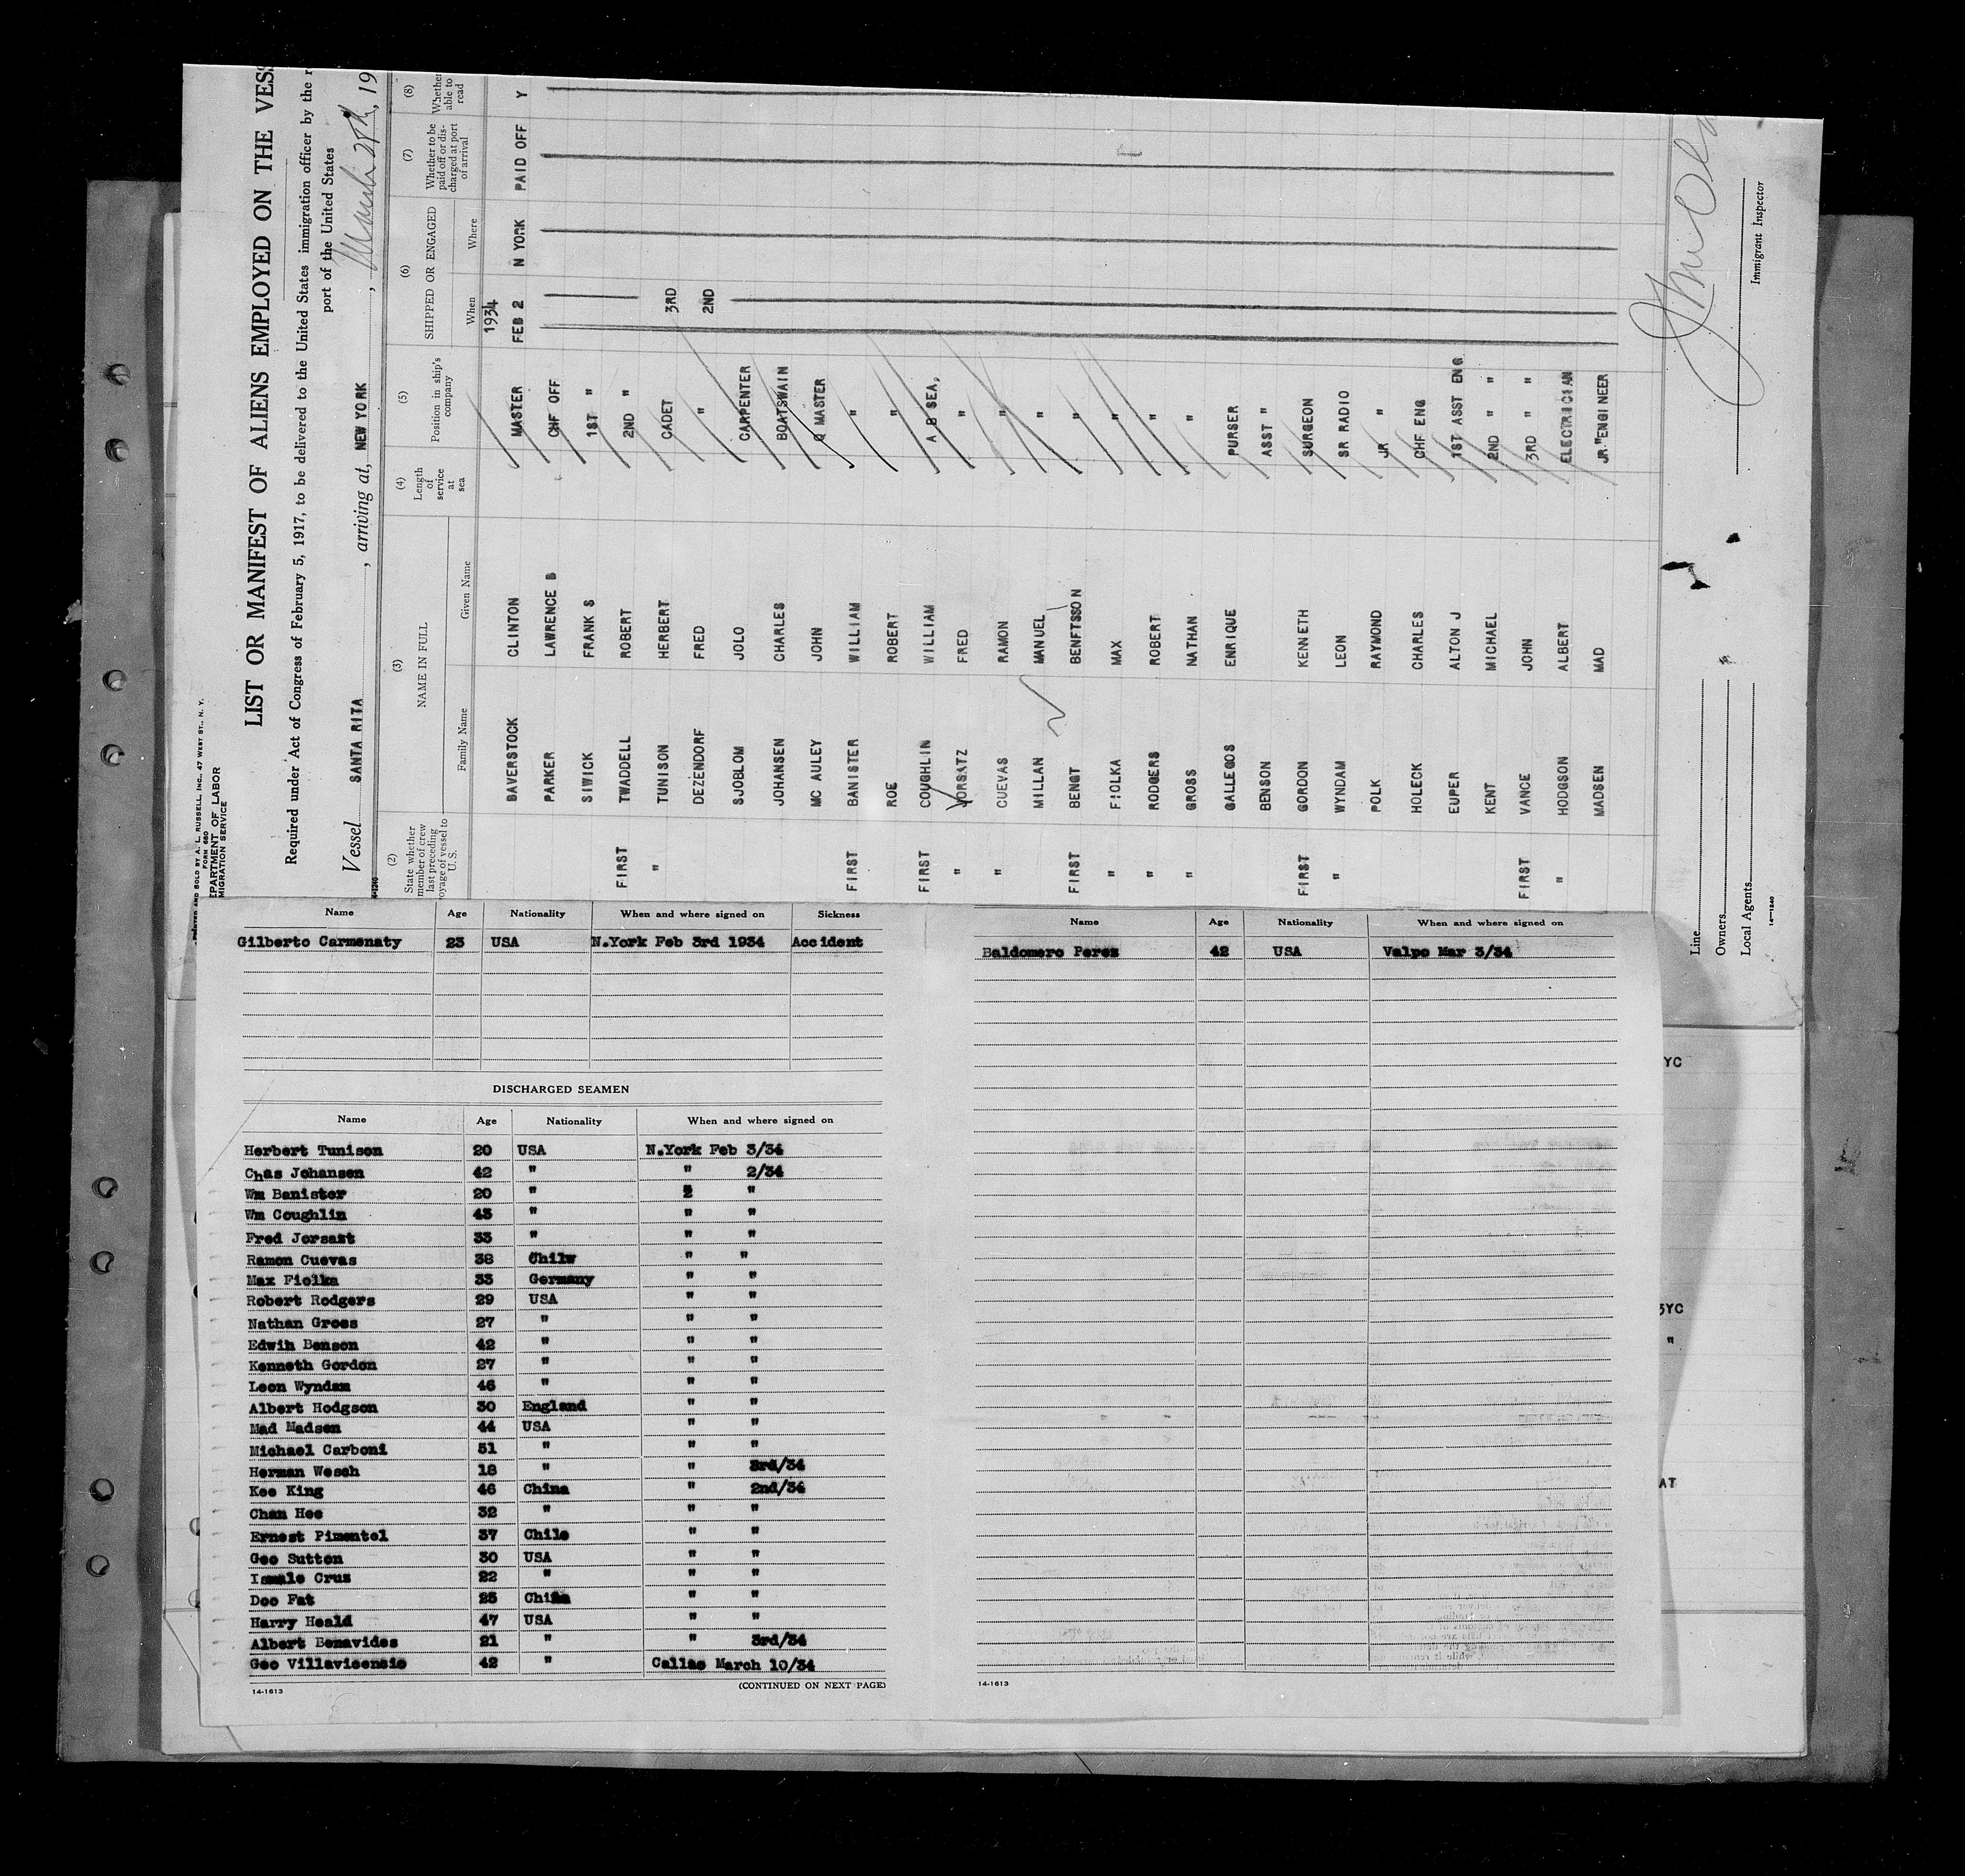 PRINTED AND SOLD BY A. L. RUSSELL, INC., 47 WEST ST., N. Y.
FORM 680
DEPARTMENT OF LABOR
IMMIGRATION SERVICE
LIST OR MANIFEST OF ALIENS EMPLOYED ON THE VESS
Required under Act of Congress of February 5, 1917, to be delivered to the United States immigration officer by the r
port of the United States
Vessel SANTA RITA, arriving at, NEW YORK, March 27th, 19
(2) (3) (4) (5) (6) (7) (8)
State whether member of crew last preceding voyage of vessel to U. S. NAME IN FULL Length of service at sea Position in ship's company SHIPPED OR ENGAGED Whether to be paid off or discharged at port of arrival Whether able to read
Family Name Given Name When Where
1934
BAVERSTOCK CLINTON MASTER FEB 2 N YORK PAID OFF Y
PARKER LAWRENCE B CHF OFF
SIWICK FRANK S 1ST "
FIRST TWADDELL ROBERT 2ND "
" TUNISON HERBERT CADET 3RD
DEZENDORF FRED " 2ND
SJOBLOM JOLO CARPENTER
JOHANSEN CHARLES BOATSWAIN
MC AULEY JOHN Q MASTER
FIRST BANISTER WILLIAM "
ROE ROBERT "
FIRST COUGHLIN WILLIAM A B SEA,
" JORSATZ FRED "
" CUEVAS RAMON "
MILLAN MANUEL "
FIRST BENGT BENFTSSON "
" FIOLKA MAX "
" RODGERS ROBERT "
" GROSS NATHAN "
GALLEGOS ENRIQUE PURSER
BENSON ASST "
FIRST GORDON KENNETH SURGEON
" WYNDAM LEON SR RADIO
POLK RAYMOND JR "
HOLECK CHARLES CHF ENG
EUPER ALTON J 1ST ASST ENG
KENT MICHAEL 2ND " "
FIRST VANCE JOHN 3RD " "
" HODGSON ALBERT ELECTRICIAN
MADSEN MAD JR."ENGINEER
Line
Owners
Local Agents
14—1240
Immigrant Inspector
Name Age Nationality When and where signed on Sickness
Gilberto Carmenaty 23 USA N.York Feb 3rd 1934 Accident
DISCHARGED SEAMEN
Name Age Nationality When and where signed on
Herbert Tunison 20 USA N.York Feb 3/34
Chas Johansen 42 " " 2/34
Wm Banister 20 " "
Wm Coughlin 43 " " "
Fred Jorsazt 33 " " "
Ramon Cuevas 38 Chilw " "
Max Fiolka 33 Germany " "
Robert Rodgers 29 USA " "
Nathan Gross 27 " " "
Edwih Benson 42 " " "
Kenneth Gordon 27 " " "
Leon Wyndam 46 " " "
Albert Hodgson 30 England " "
Mad Madsen 44 USA " "
Michael Carboni 51 " " "
Herman Wesch 18 " " 3rd/34
Kee King 46 China " 2nd/34
Chan Hee 32 " " "
Ernest Pimentel 37 Chile " "
Geo Sutton 30 USA " "
Ismale Cruz 22 " " "
Doo Fat 25 China " "
Harry Heald 47 USA " "
Albert Benavides 21 " " 3rd/34
Geo Villavicensio 42 " Callao March 10/34
14-1613 (CONTINUED ON NEXT PAGE)
Name Age Nationality When and where signed on
Baldomero Perez 42 USA Valpo Mar 3/34
14-1613
YC
YC
"
AT